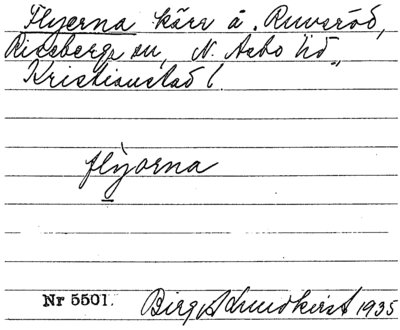 Flyerna kärr å Ruvseröd,
Riseberga sn, N. Åsbo hd
Kristianstad l.
flỳorna
Nr 5501. Birgit Lundkvist 1935